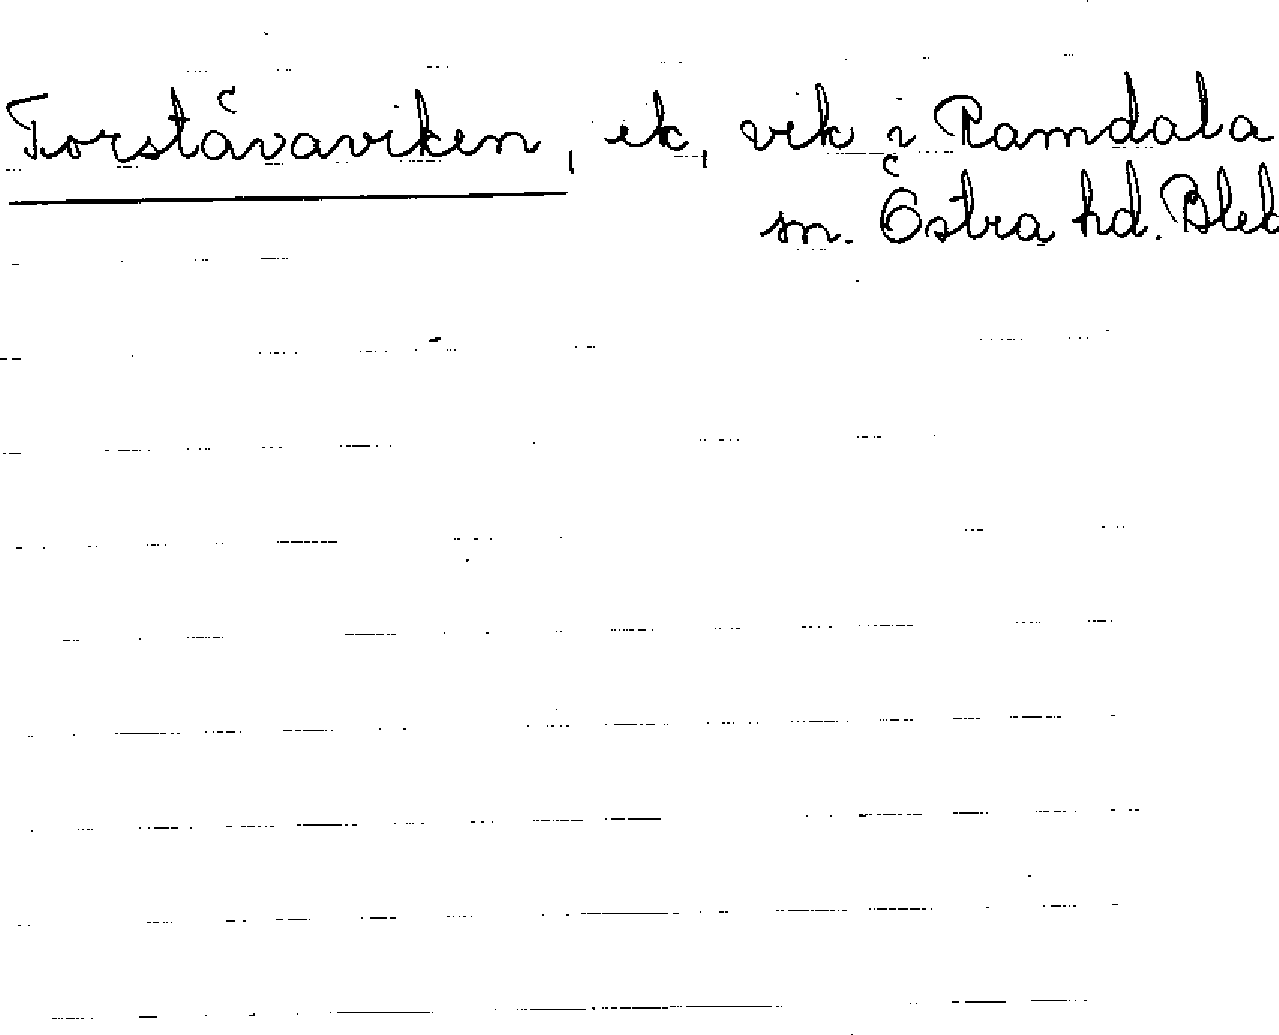 Torstävaviken, ek, vik i Ramdala
sn. Östra hd. Blek